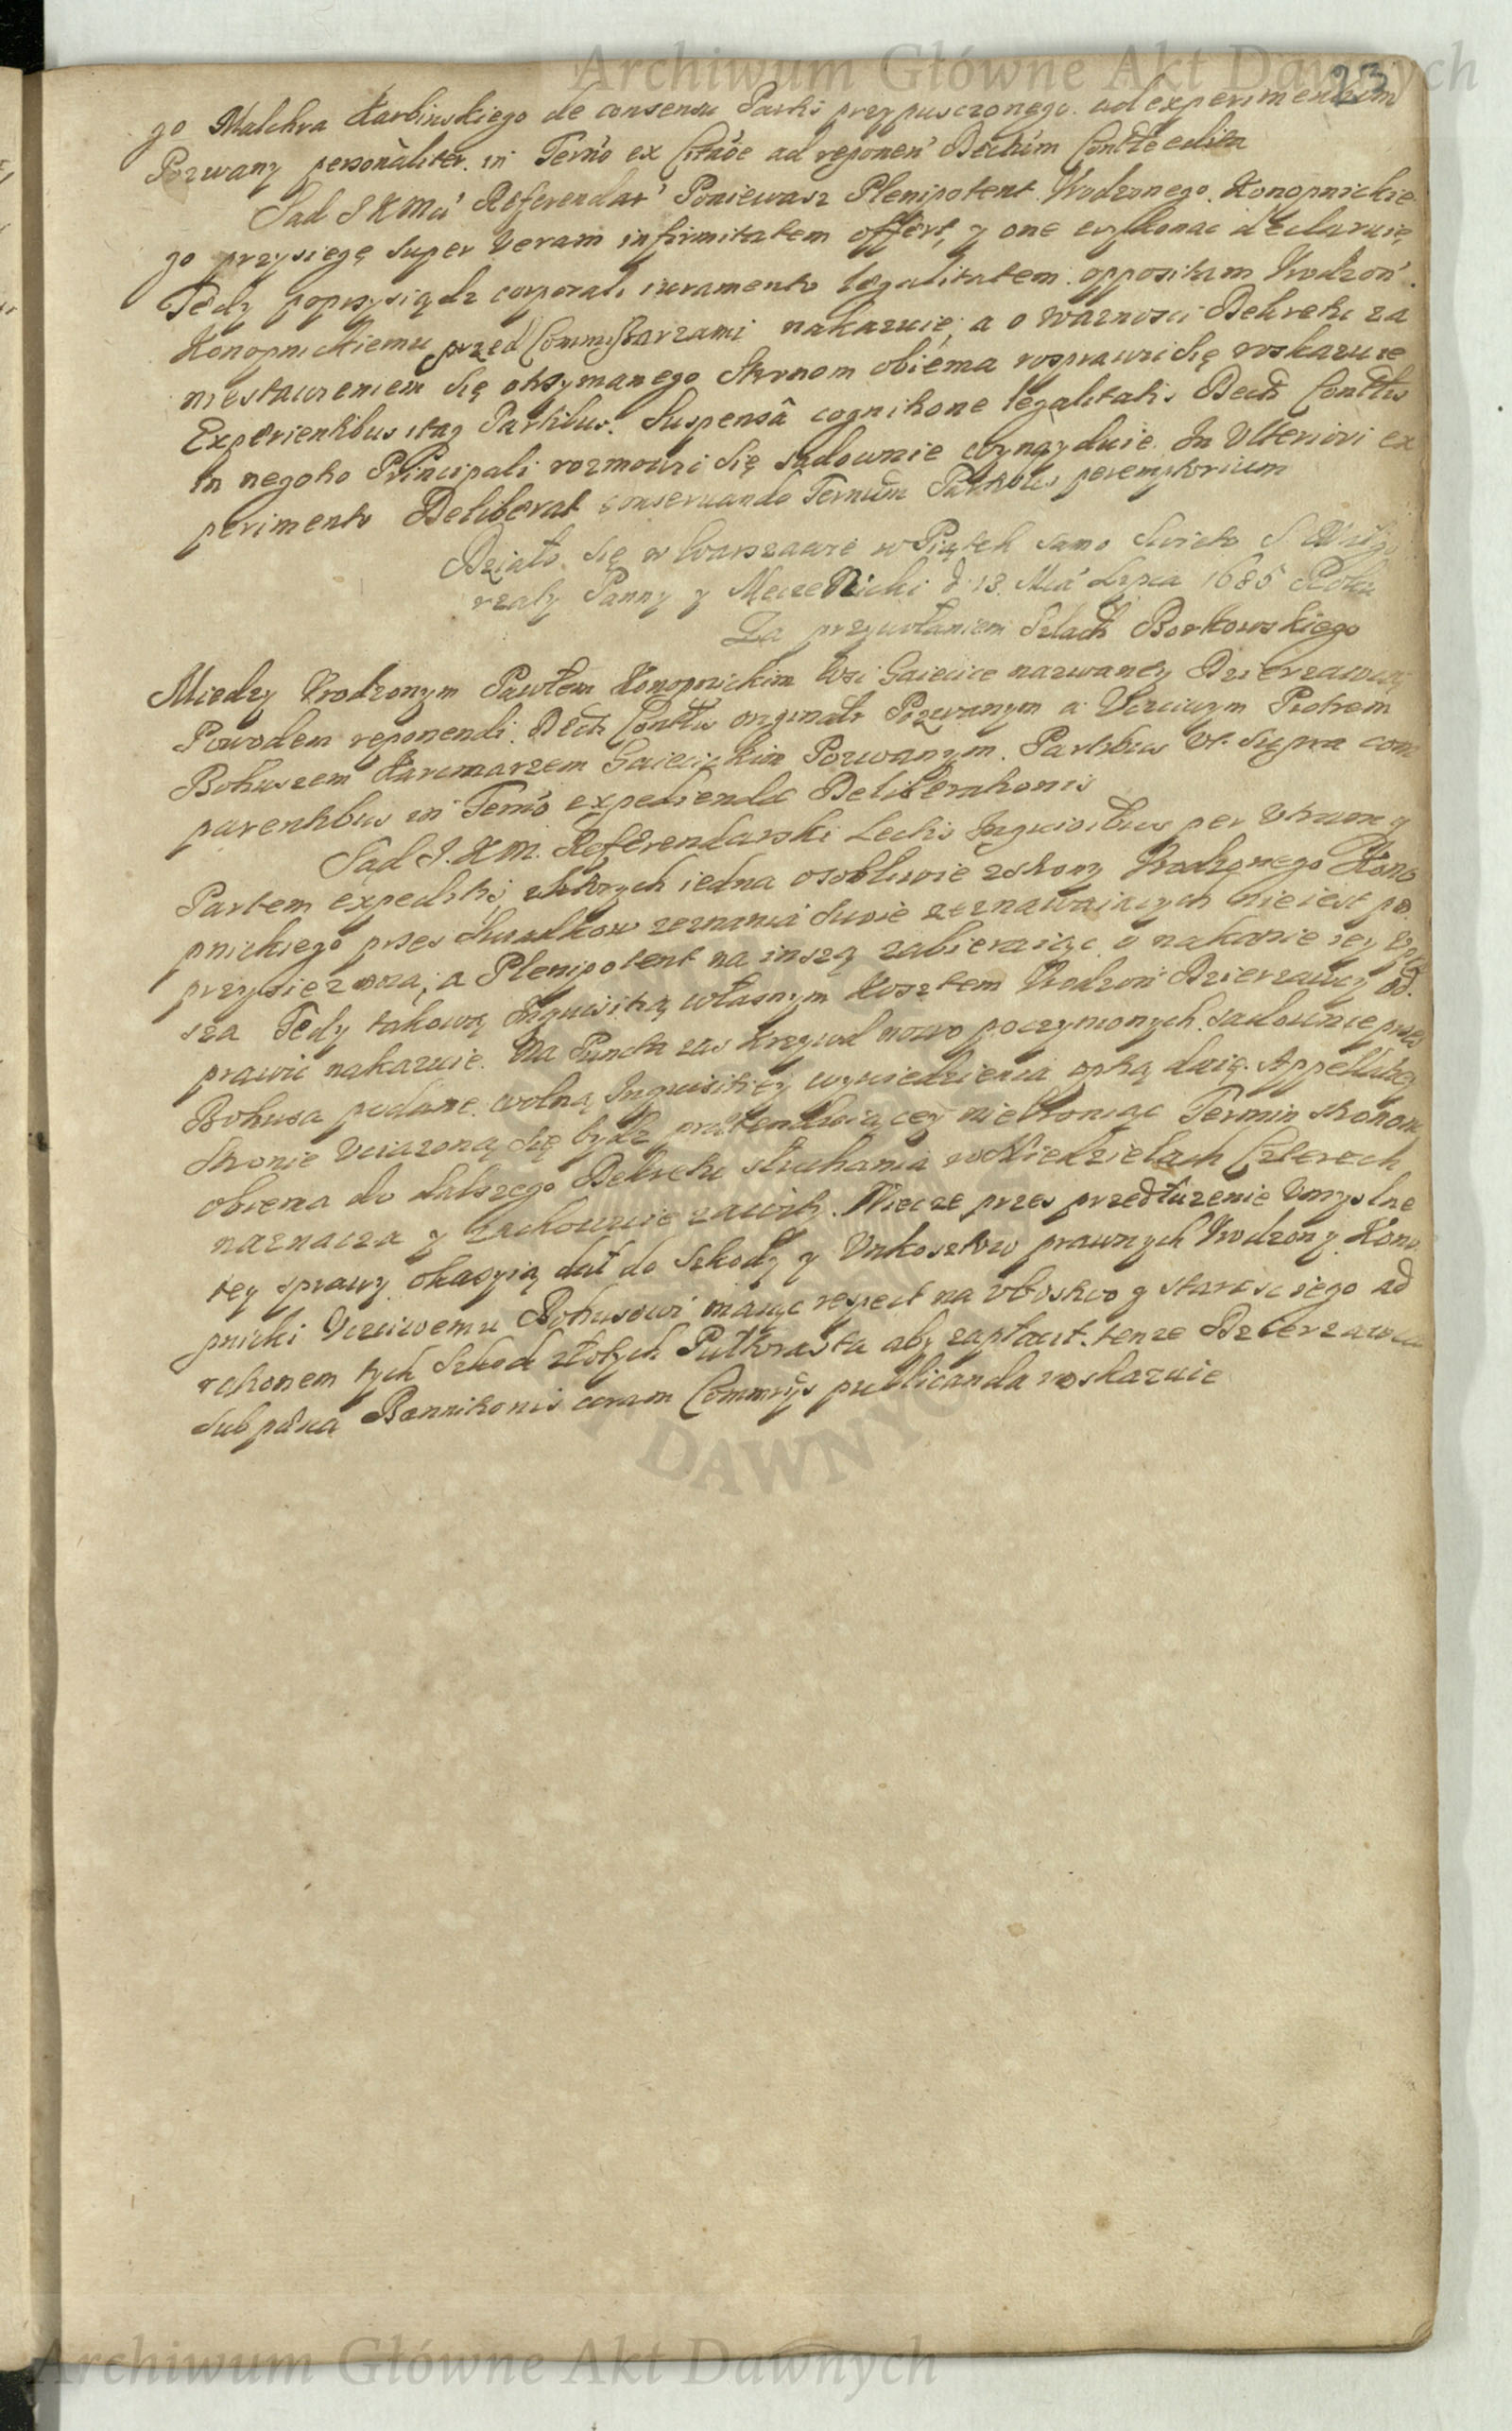 Archiwum Główne Akt Dawnych
23
go Malchra Karbinskiego de consensu Partis przypusczonego ad experimentum
Pozwany personaliter in Termo ex Citaoe ad reponen Dectum Conttle editu
Sad J K Mci Referendar Poniewasz Plenipotent Vrodzonego Konopnickie
go przysiegę super veram infirmitatem offert, y one wykonac declaruie,
Tedy poprzysiądz corporali iuramento legalitatem oppositam Vrodzon
Konopnickiemu przed Commissarzami nakazuie, a o waznosci Dekretu za
niestawieniem się otrzymanego Stronom obiema rosprawić się roskazuie
Experientibus itaq Partibus. Suspensâ cognitione legalitatis Decti Conttlis
in negotio Principali rozmowić się sądownie wynayduie. In Ulteriori ex
perimento Deliberat conseruando Termum Partibus peremptorium
Działo się w Warszawie w Piątek samo Swieto S
rzaty Panny y Meczennicki d. 13. Mca Lipca 1685 Roku
Za przywołaniem Szlach Borkowskiego
Miedzy Vrodzonym Pawłem Konopnickim Wsi Gaiecice nazwaney Dzierzawcą
Powodem reponendi Decti Conttlis orginali Pozwanym a Vczciwym Piotrem
Bohuszem Karczmarzem Gaiecickim Pozwanym. Partibus vt supra com
parentibus in Termo expediendae Deliberationis
Sąd J. K M. Referendarski Lectis Inquisitibus per Vtramq
Partem expeditis, z ktorych iedna osobliwie z strony Vrodzonego Kono
pnickiego przes swiadkow zeznania swoie zeznawaiących nie iest po
przysięzona, a Plenipotent na inszą zabieraiąc o nakazie iey
sza Tedy takową Inquisitią własnym kosztem Vrodzon Dzierzawcy od
prawić nakazuie. Na Puncta zas krzywd nowo poczynionych sadownie przes
Bohusa podane wolną Inquisitiey wywiedzienia optią daią. Appellatiey
Stronie Vciazoną się bydz praetenduiącey niebroniąc Termin Stronom
obiema do dalszego Dekretu słuchania w Niedzielach Czterech
naznacza y zachowuie zawity. Więc ze przes przedłuzenie Vmyslne
tey sprawy okazyią dał do szkody y Vnkosztow prawnych Vrodzony Kono
pnicki Vczciwemu Bohusowi maiąc respect na vbostwo y starosc iego ad
rationem tych szkod złotych Pułtorasta aby zapłacił tenze Dzierzawca
sub paena Bannitionis coram Commrijs publicanda roskazuie
DAWNYCH
Archiwum Główne Akt Dawnych